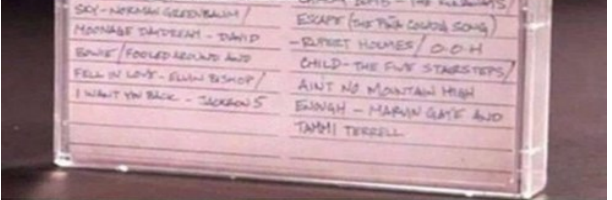 SKY-NORMAN GREENBAUM/
MOONAGE DAYDREAM - DAVID
BOWIE/FOOLED AROUND AND
FELL IN LOVE - ELVIN BISHOP/
I WANT YOU BACK - JACKSON 5
BOMB - THE RUNAWAYS/
ESCAPE (THE PIÑA COLADA SONG)
-RUPERT HOLMES/ O-O-H
CHILD-THE FIVE STAIRSTEPS/
AIN'T NO MOUNTAIN HIGH
ENOUGH - MARVIN GAYE AND
TAMMI TERRELL